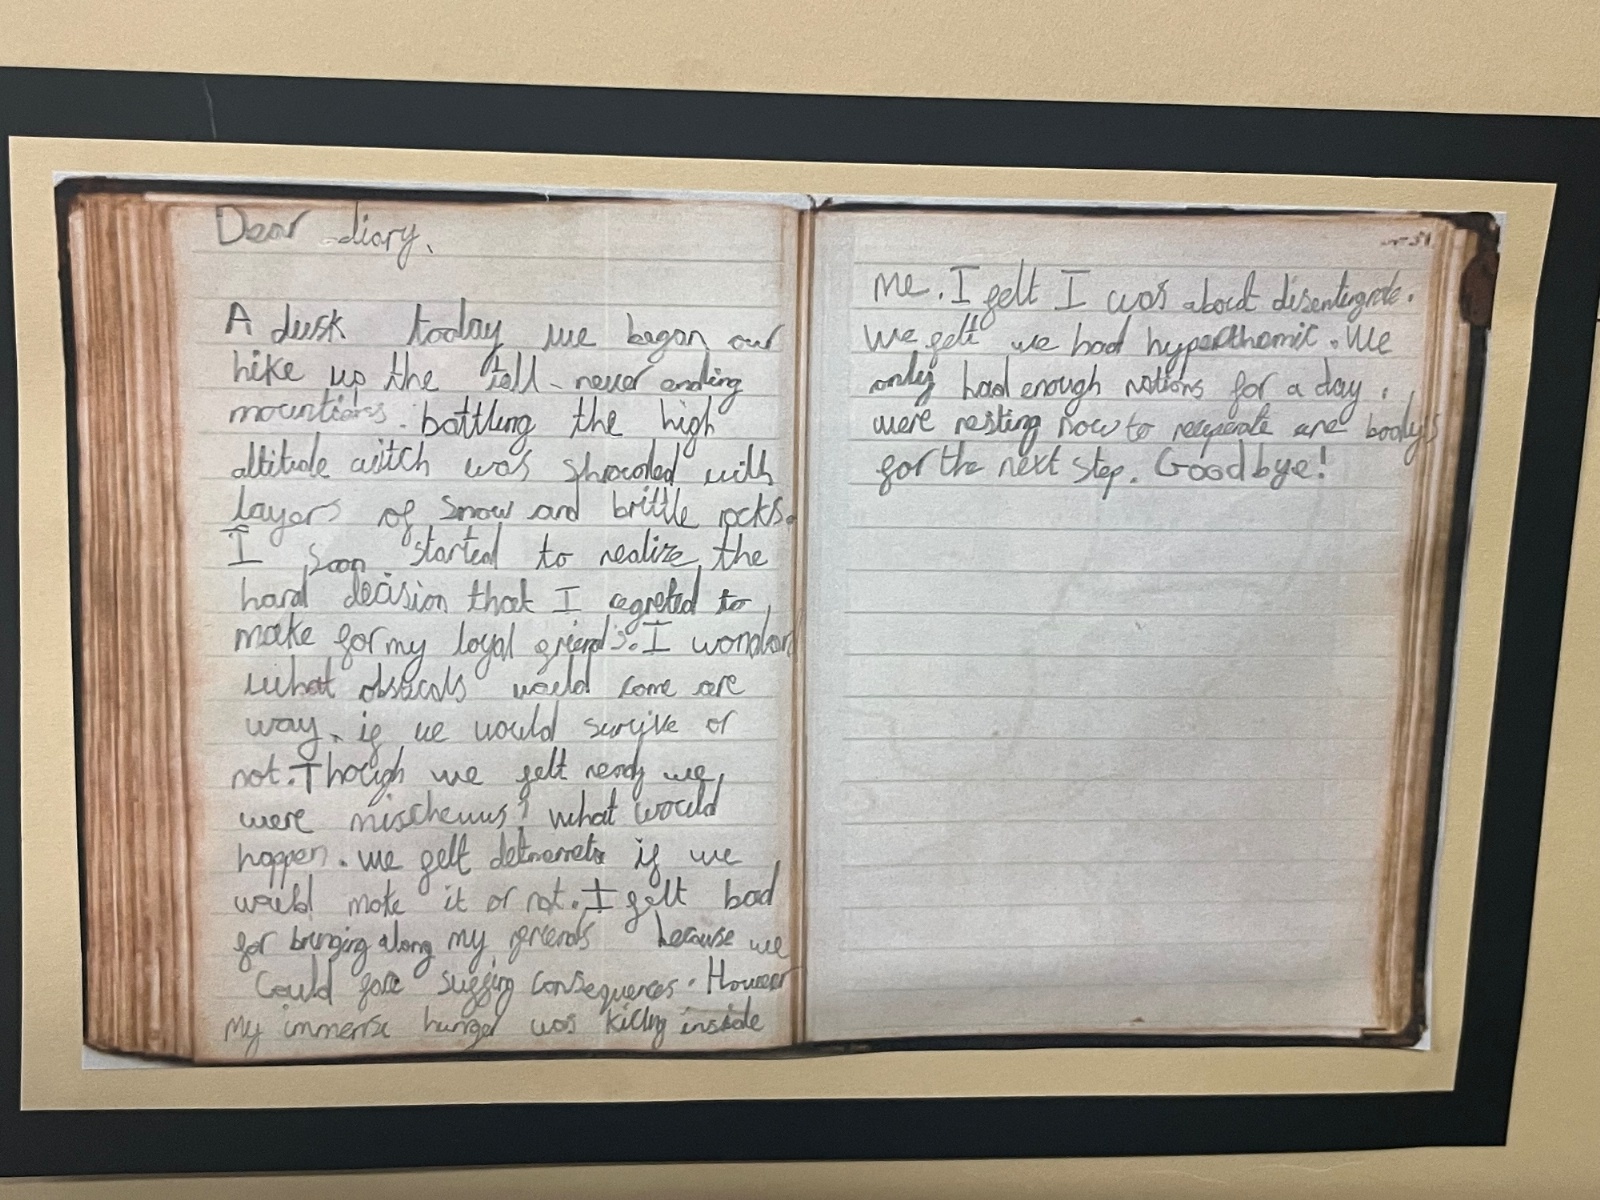 Dear diary,
A dusk today we began our
hike up the tall, never ending
mountians. battling the high
altitude witch was shrouded with
layers of snow and brittle rocks.
I soon started to realize the
hard decision that I regreted to
make for my loyal friend's. I wonderd
what obsticals would come are
way, if we would survive or
not. Though we felt ready we
were mischevus? what would
happen. we felt if we
would make it or not. I felt bad
for bringing along my friends because we
Could face suffing consequences. However
My immense hunger was killing inside
me. I felt I was about disentergrate.
We felt we had hyperthomic. We
only had enough rations for a day.
were resting now to recuperate are body's
for the next step. Goodbye!